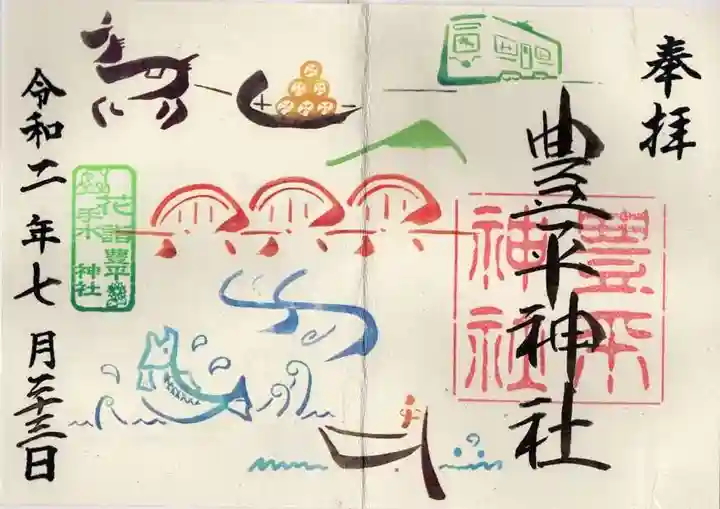 奉拝
豊平神社
豊平
神社
令和二年七月二十三日
花詣
豊平
手水
神社